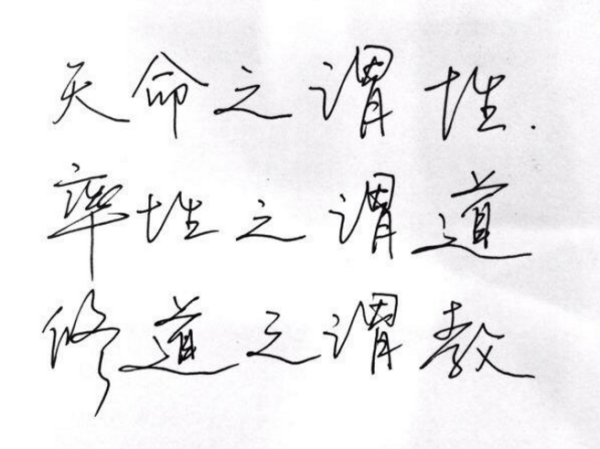 天命之谓性.
率性之谓道
修道之谓教